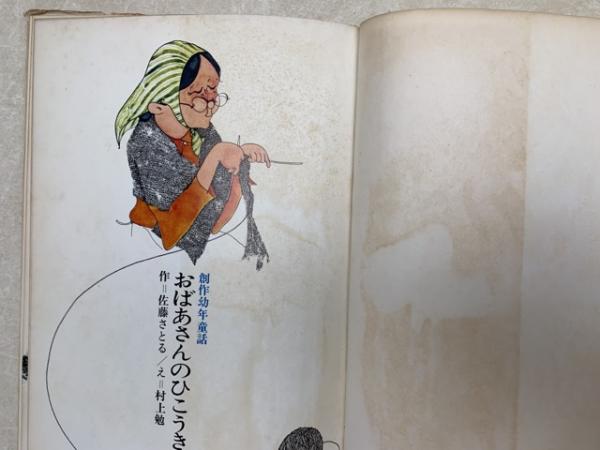 創作幼年童話
おばあさんのひこうき
作＝佐藤さとる／え＝村上勉